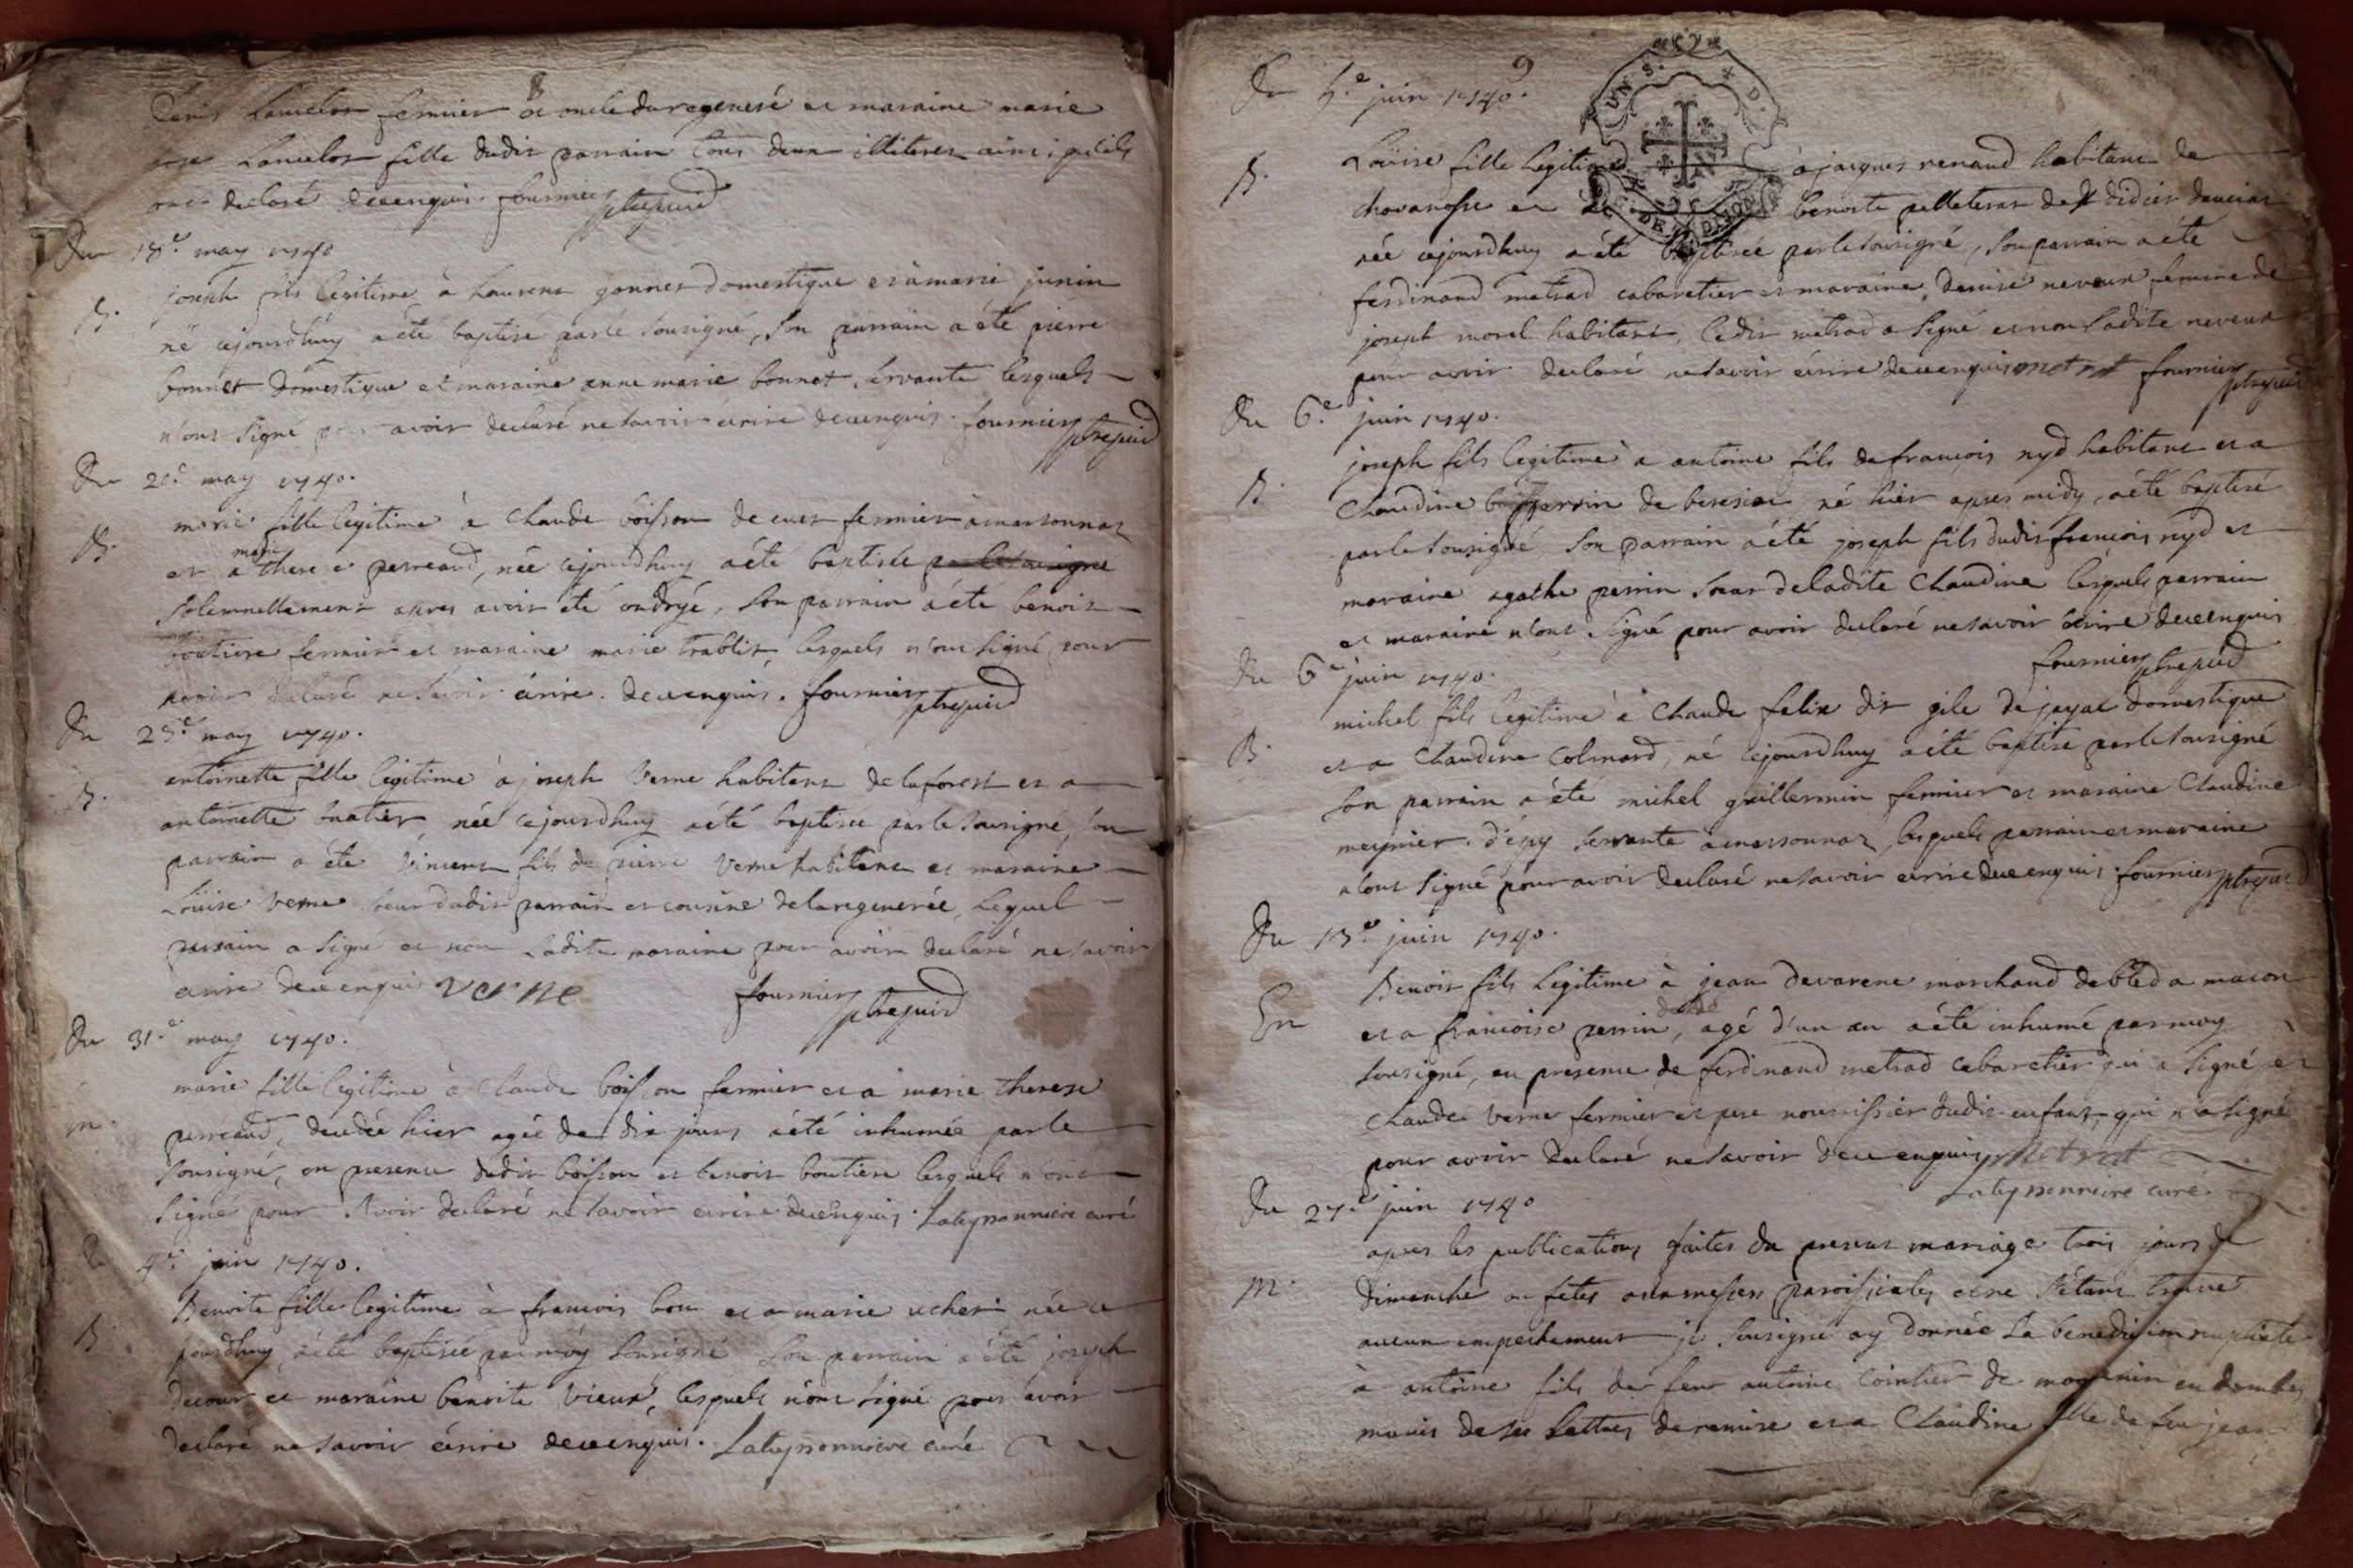 8
Denis Lancelot fermier et oncle du regeneré et maraine marie
Lancelot fille dudit parrain tous deux illiteres ainsi qu'ils
ont declaré de ce enquis. fournier ptre vic
Du 18e. may 1740
B. joseph fils legitime à Laurent gonnet domestique et à marie junin
né cejourdhuy a été baptisé par le sousigné, son parrain a été pierre
bonnet domestique et maraine anne marie bonnet, servante lesquels
n'ont signé pour avoir declaré ne savoir ecrire de ce enquis. fournier
Du may 1740.
B. marie fille legitime à Claude boisson de fermier a marsonnaz
et a marie therese perreaud, née cejourdhuy a été baptisée par le sousigné
solemnellement apres avoir été ondoyé, son parrain a été benoit
boutiere fermier et maraine marie trablit, lesquels n'ont signé pour
avoir declaré ne savoir ecrire. de ce enquis. fournier
Du may 1740.
B. antoinette fille legitime à joseph Verne habitant de la forest et a
antoinette buatier, née cejourdhuy a été baptisée par le sousigné, son
parrain a été Vincent fils de pierre Verne habitant et maraine
Loüise Verne soeur dudit parrain et cousine de la regenerée, Lequel
parrain a signé et non Ladite maraine pour avoir declaré ne savoir
ecrire de ce enquis Verne fournier
Du 31e. may 1740.
m. marie fille legitime à Claude boisson fermier et a marie therese
perreaud, decedée hier agée de dix jours a été inhumée par le
sousigné, en presence dudit boisson et benoit boutiere lesquels n'ont
signé pour Avoir declaré ne savoir ecrire de ce enquis. Lateyssonniere curé
Du 4e. juin 1740.
B. Benoite fille legitime à francois bon et a marie uchet née ce
jourdhuy, a été baptisée par moy sousigné son parrain a été joseph
decour et maraine benoite Vieux, lesquels n'ont signé pour avoir
declaré ne savoir écrire de ce enquis. Lateyssonniere curé
9
Du 5.e juin 1740.
B. Loüise fille Legitime à jacques renaud habitant de
chavanosse et benoite pelleterat de st didier
née cejourdhuy a été baptisée par le sousigné, son parrain a été
ferdinand metrad cabaretier et maraine, denise neveux femme de
joseph morel habitant, Ledit metrad a signé et non Ladite neveux
pour avoir declaré ne savoir écrire de ce enquis metrat fournier
Du 6.e juin 1740.
B. joseph fils legitime à antoine fils de francois nyd habitant et a
Claudine perrin de né hier apres midy, a été baptisé
par le sousigné, son parrain a été joseph fils dudit francois nyd et
maraine agathe perrin soeur de ladite Claudine lesquels parrain
et maraine n'ont signé pour avoir declaré ne savoir écrire de ce enquis
fournier
Du 6e juin 1740.
B. michel fils legitime à Claude felix dit gile de jayat domestique
et a Claudine Colmard, né cejourdhuy a été baptisé par le sousigné
son parrain a été michel guillermin fermier et maraine Claudine
meynier d'épy servante a marsonnaz, lesquels parrain et maraine
n'ont signé pour avoir declaré ne savoir ecrire de ce enquis fournier
Du 13.e juin 1740.
En Benoit fils Legitime à jean devarene marchand de bled a macon
et a francoise perrin, agé d'un an a été inhumé par moy
sousigné, en presence de ferdinand metrad cabaretier qui a signé et
Claude Verne fermier et pere nourrissier dudit enfant, qui n'a signé
pour avoir declaré ne savoir de ce enquis metrat
Lateyssonniere curé.
Du 27.e juin 1740
m. apres les publications faites du present mariage trois jours de
dimanche ou fetes aux messes paroissiales et ne s'étant trouvé
aucun empechement je sousigné ay donnée La benediction nuptiale
à antoine fils de feu antoine Cointier de en dombes,
munis de ses Lettres de remise et a Claudine fille de feu jean